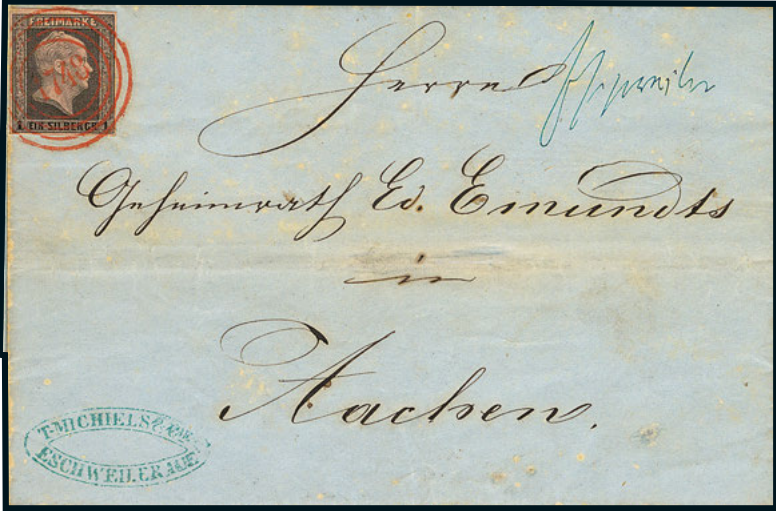 FREIMARKE
748
1 EIN SILBERGR. 1
Herrn
Eschweiler
Geheimrath Ed. Emundts
in
Aachen.
T. MICHIELS
ESCHWEILER